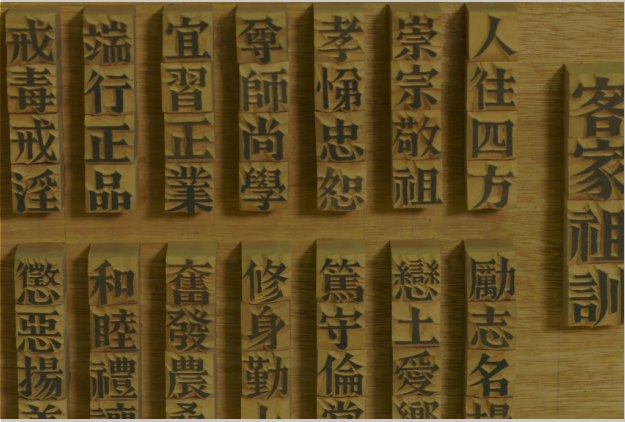 客家祖訓
人往四方
崇宗敬祖
孝悌忠恕
尊師尚學
宜習正業
端行正品
戒毒戒淫
勵志名揚
戀土愛鄉
篤守倫常
修身勤
奮發農桑
和睦禮讓
懲惡揚善